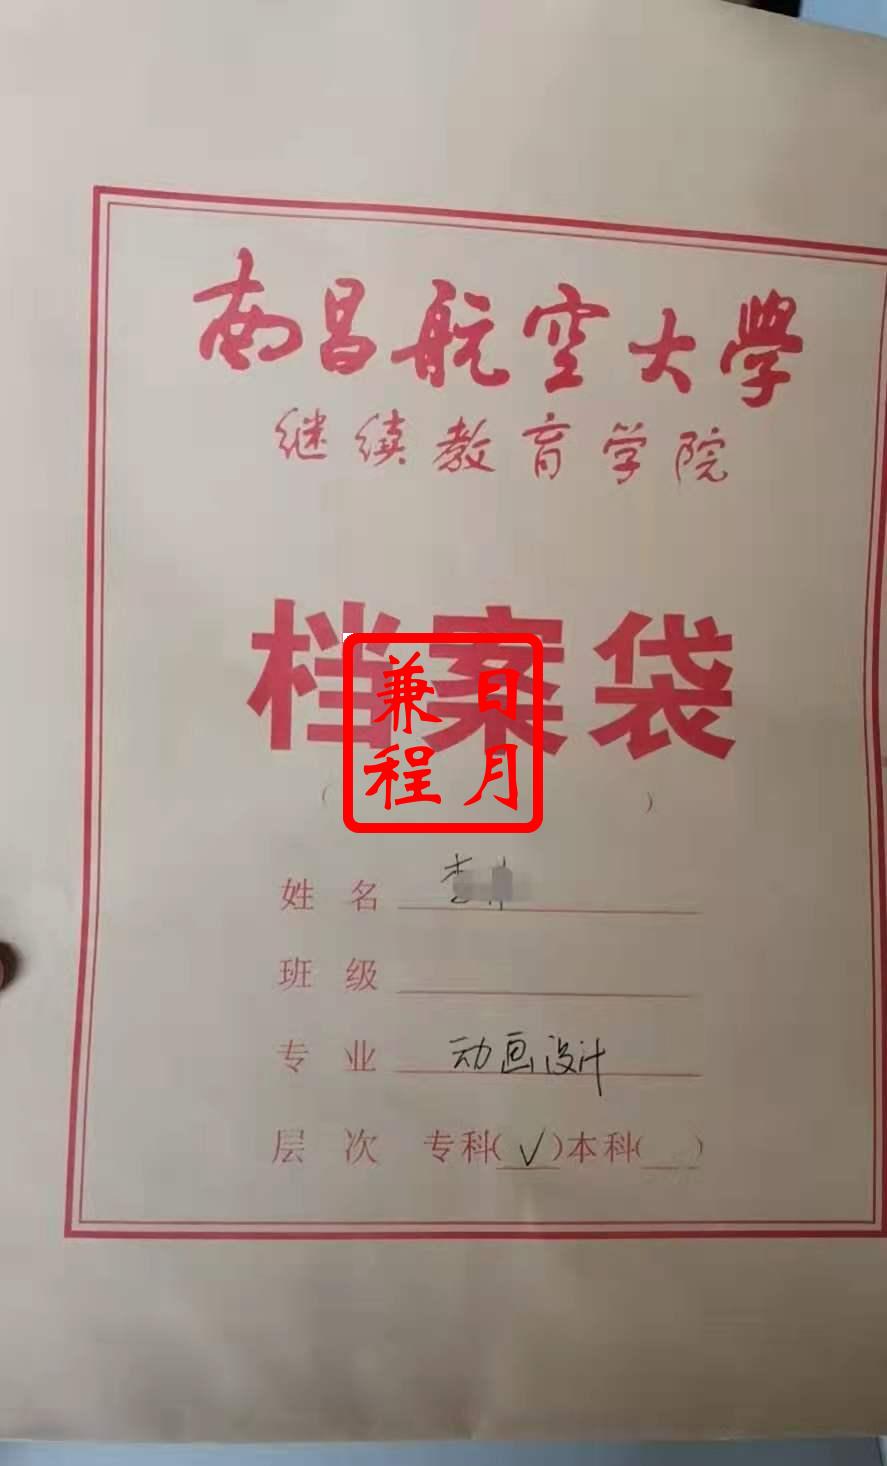 南昌航空大學
继续教育学院
档案袋
兼日
程月
( )
姓名
班级
专业 动画设计
层次 专科(√)本科( )